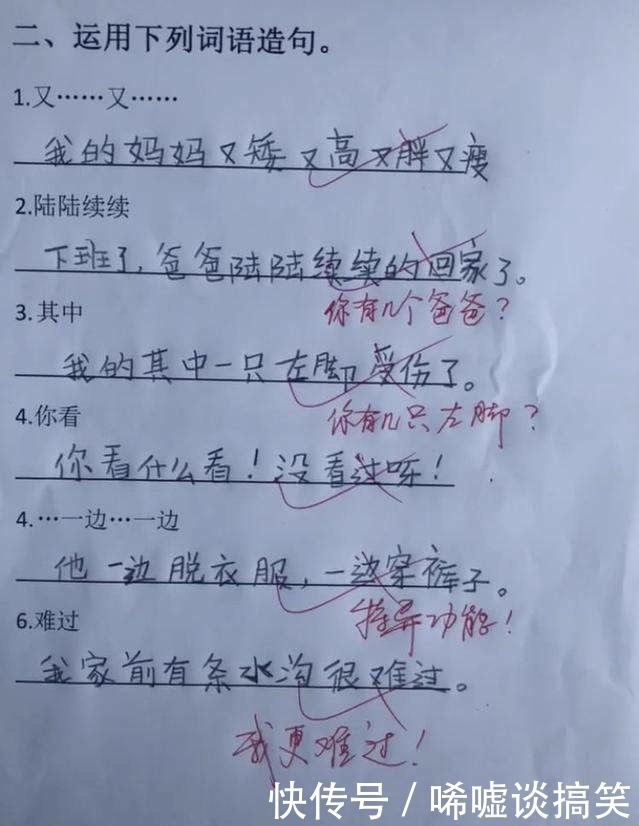 二、运用下列词语造句。
1.又……又……
我的妈妈又矮又高又胖又瘦
2.陆陆续续
下班了，爸爸陆陆续续的回家了。
你有几个爸爸？
3.其中
我的其中一只左脚受伤了。
你有几只左脚？
4.你看
你看什么看！没看过呀！
4.…一边…一边
他一边脱衣服，一边穿裤子。
特异功能！
6.难过
我家前有条水沟很难过。
我更难过！
快传号／唏嘘谈搞笑